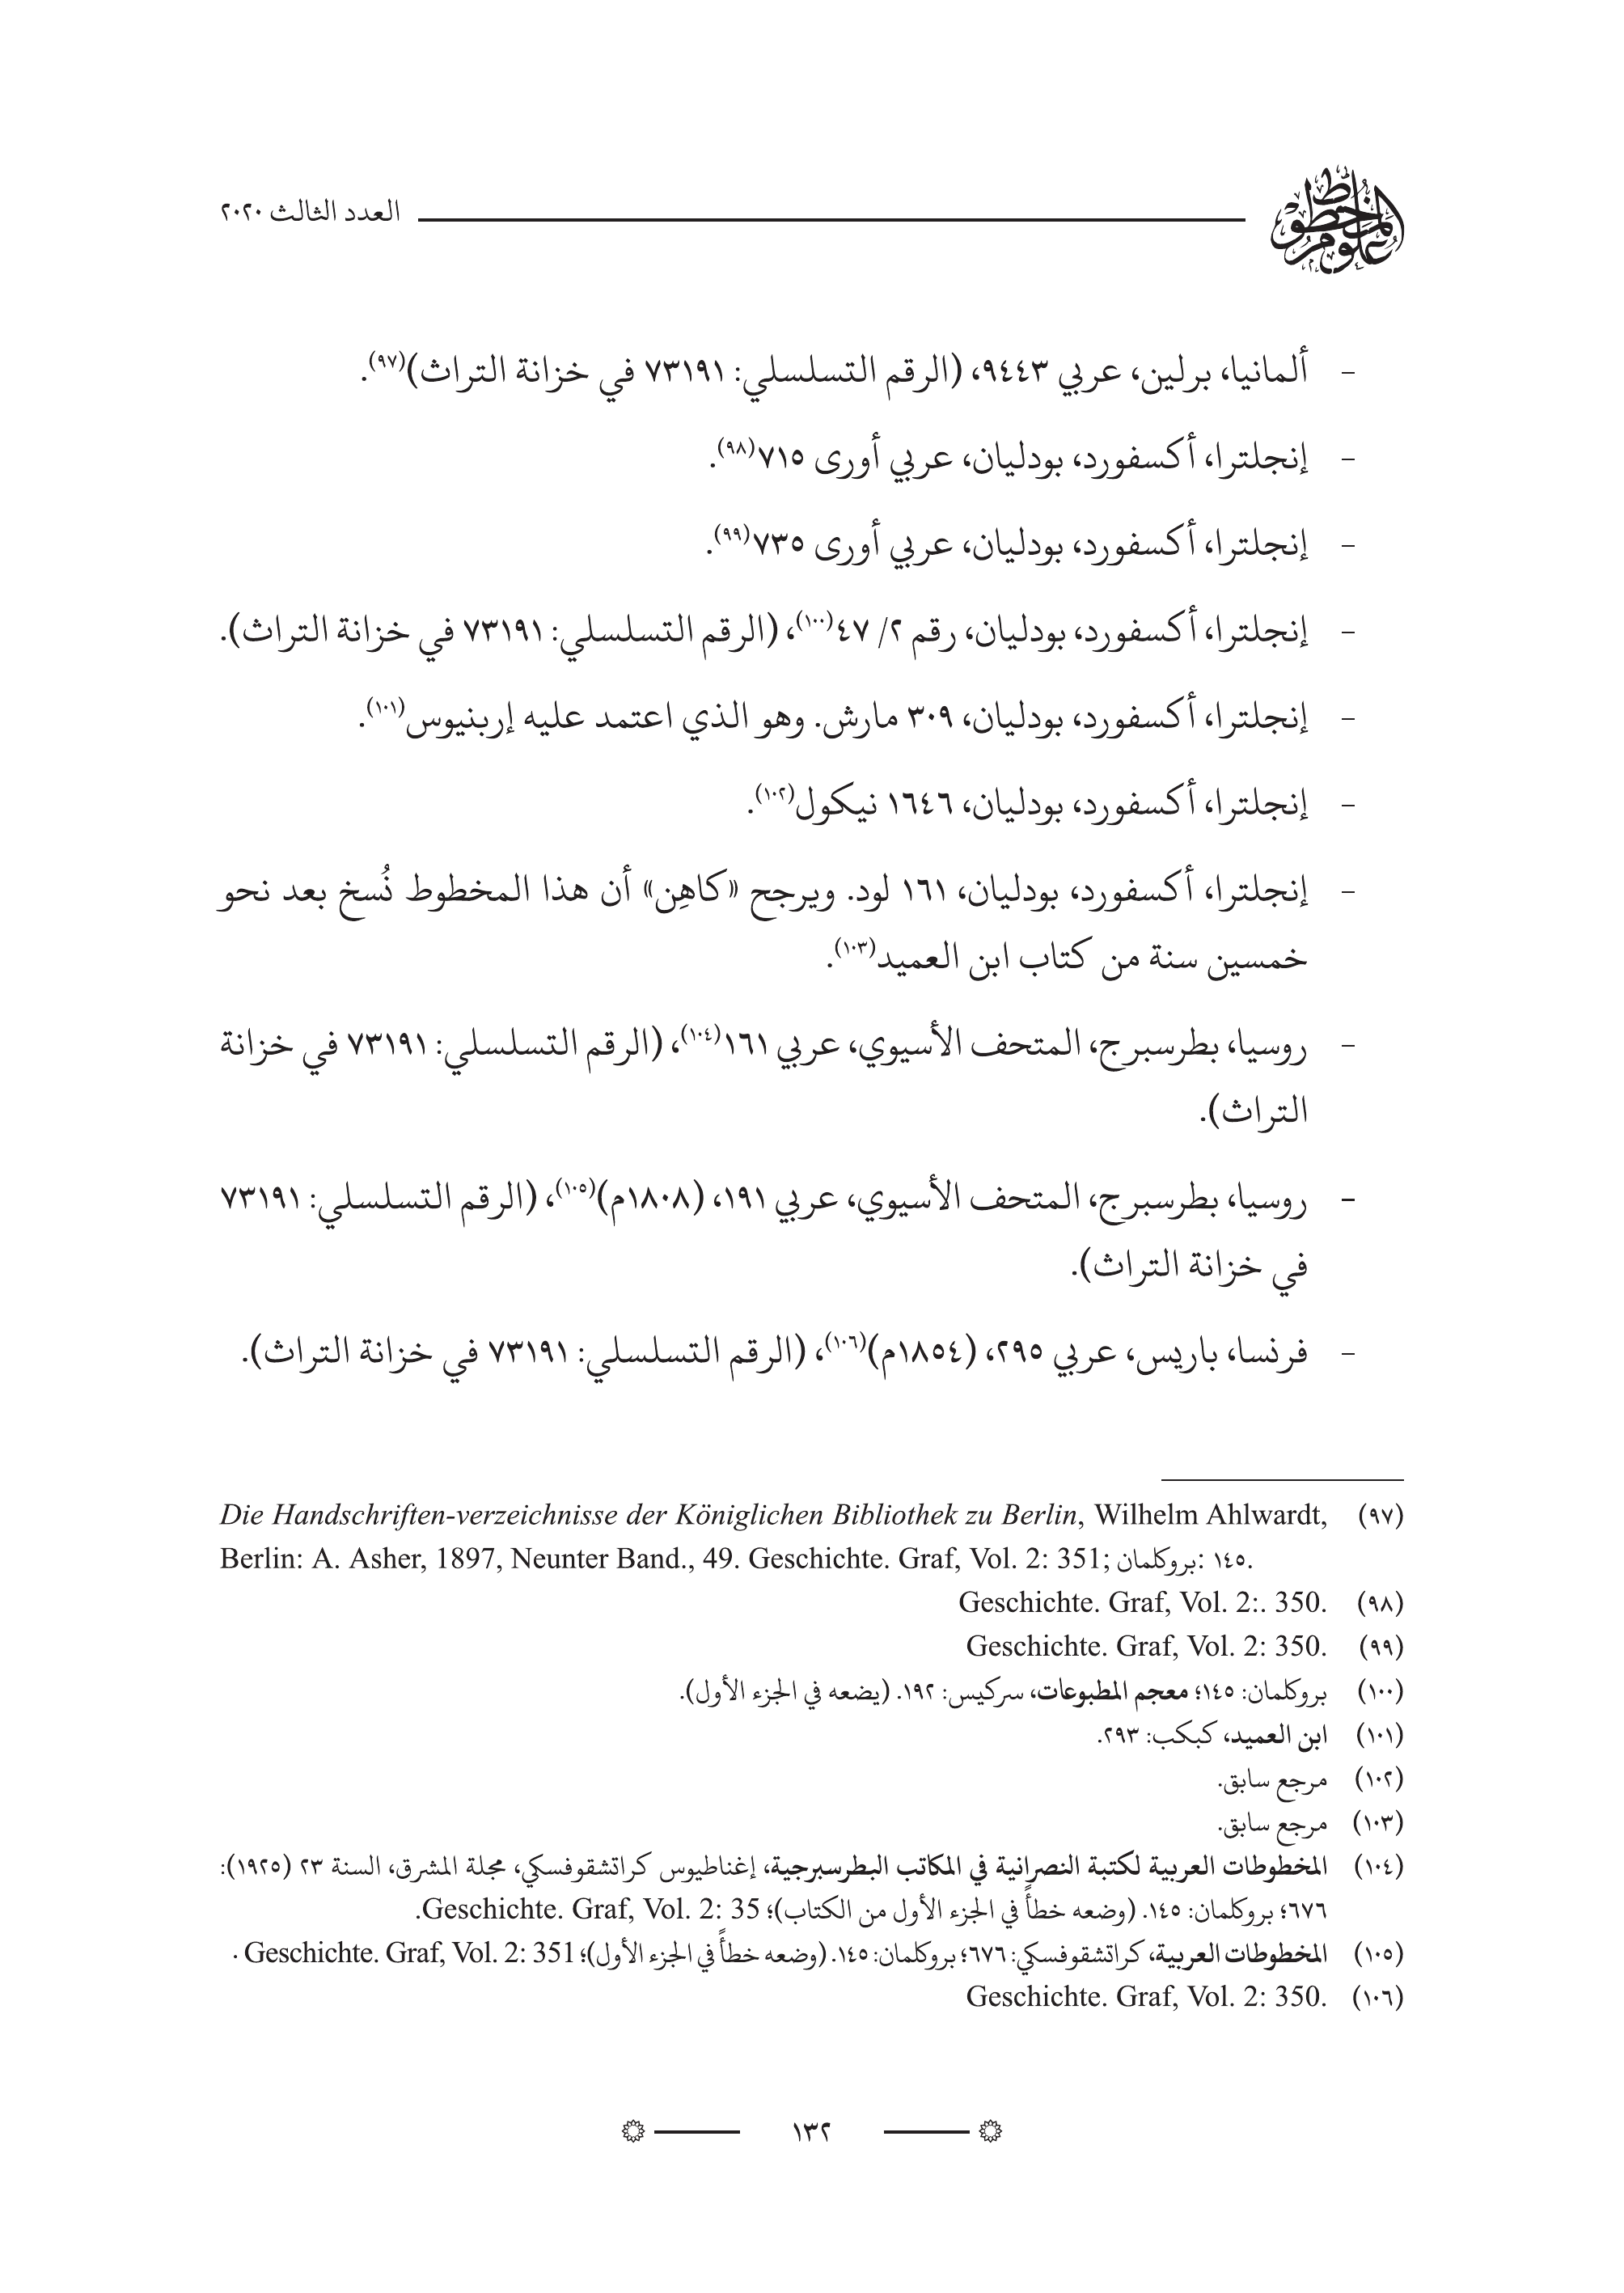 علوم المخطوط
العدد الثالث ٢٠٢٠
- ألمانيا، برلين، عربي ٩٤٤٣، (الرقم التسلسلي: ٧٣١٩١ في خزانة التراث)(٩٧).
- إنجلترا، أكسفورد، بودليان، عربي أورى ٧١٥(٩٨).
- إنجلترا، أكسفورد، بودليان، عربي أورى ٧٣٥(٩٩).
- إنجلترا، أكسفورد، بودليان، رقم ٢/ ٤٧(١٠٠)، (الرقم التسلسلي: ٧٣١٩١ في خزانة التراث).
- إنجلترا، أكسفورد، بودليان، ٣٠٩ مارش. وهو الذي اعتمد عليه إربنيوس(١٠١).
- إنجلترا، أكسفورد، بودليان، ١٦٤٦ نيكول(١٠٢).
- إنجلترا، أكسفورد، بودليان، ١٦١ لود. ويرجح «كاهِن» أن هذا المخطوط نُسخ بعد نحو
خمسين سنة من كتاب ابن العميد(١٠٣).
- روسيا، بطرسبرج، المتحف الأسيوي، عربي ١٦١(١٠٤)، (الرقم التسلسلي: ٧٣١٩١ في خزانة
التراث).
- روسيا، بطرسبرج، المتحف الأسيوي، عربي ١٩١، (١٨٠٨م)(١٠٥)، (الرقم التسلسلي: ٧٣١٩١
في خزانة التراث).
- فرنسا، باريس، عربي ٢٩٥، (١٨٥٤م)(١٠٦)، (الرقم التسلسلي: ٧٣١٩١ في خزانة التراث).
(٩٧) Die Handschriften-verzeichnisse der Königlichen Bibliothek zu Berlin, Wilhelm Ahlwardt,
Berlin: A. Asher, 1897, Neunter Band., 49. Geschichte. Graf, Vol. 2: 351; بروكلمان: ١٤٥.
(٩٨) Geschichte. Graf, Vol. 2:. 350.
(٩٩) Geschichte. Graf, Vol. 2: 350.
(١٠٠) بروكلمان: ١٤٥؛ معجم المطبوعات، سركيس: ١٩٢. (يضعه في الجزء الأول).
(١٠١) ابن العميد، كبكب: ٢٩٣.
(١٠٢) مرجع سابق.
(١٠٣) مرجع سابق.
(١٠٤) المخطوطات العربية لكتبة النصرانية في المكاتب البطرسبرجية، إغناطيوس كراتشقوفسكي، مجلة المشرق، السنة ٢٣ (١٩٢٥):
٦٧٦؛ بروكلمان: ١٤٥. (وضعه خطأً في الجزء الأول من الكتاب)؛ Geschichte. Graf, Vol. 2: 35.
(١٠٥) المخطوطات العربية، كراتشقوفسكي: ٦٧٦؛ بروكلمان: ١٤٥. (وضعه خطأً في الجزء الأول)؛ Geschichte. Graf, Vol. 2: 351 .
(١٠٦) Geschichte. Graf, Vol. 2: 350.
١٣٢